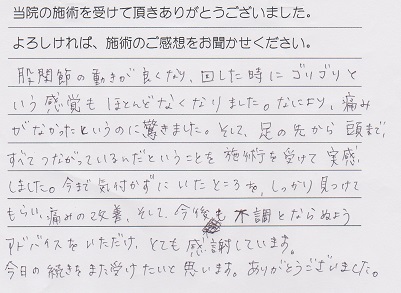 当院の施術を受けて頂きありがとうございました。
よろしければ、施術のご感想をお聞かせください。
股関節の動きが良くなり、回した時にゴリゴリと
いう感覚もほとんどなくなりました。なにより、痛み
がなかったというのに驚きました。そして、足の先から頭まで、
すべてつながっているんだということを施術を受けて実感
しました。今まで気付かずにいたところを、しっかり見つけて
もらい、痛みの改善、そして、今後も不調とならぬよう
アドバイスをいただけ、とても感謝しています。
今日の続きをまた受けたいと思います。ありがとうございました。